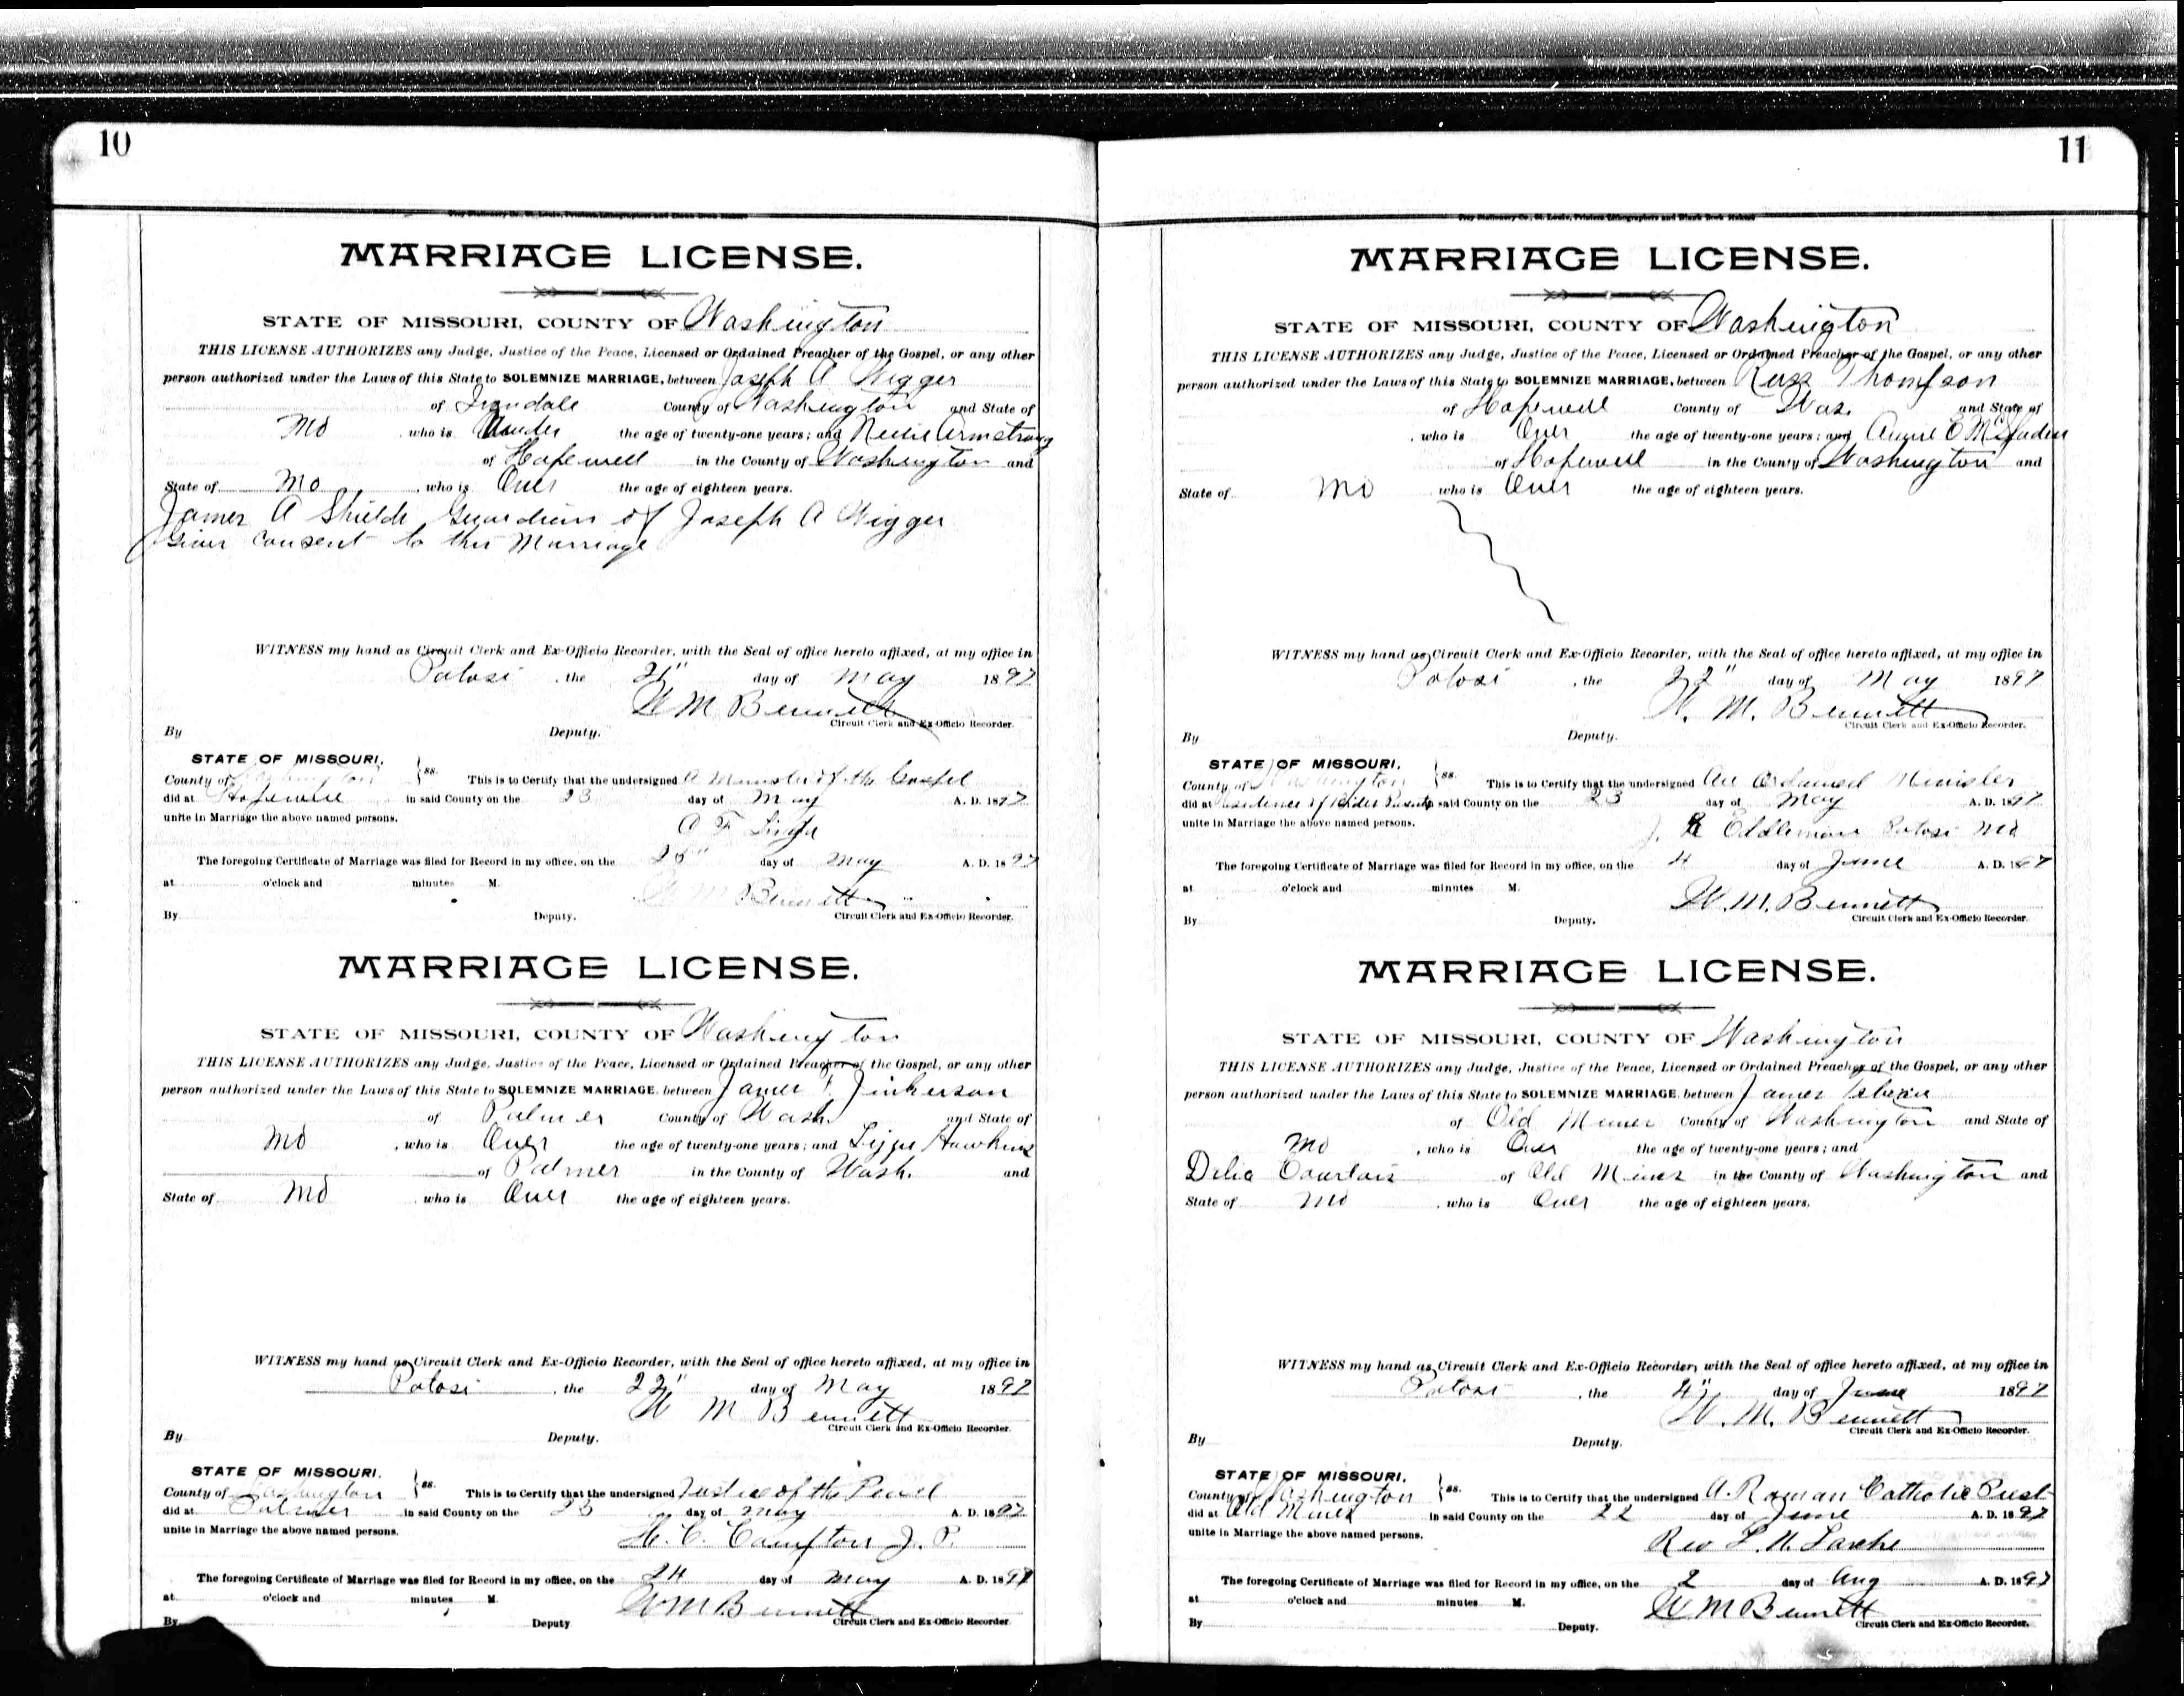 10
MARRIAGE LICENSE.
STATE OF MISSOURI, COUNTY OF Washington
THIS LICENSE AUTHORIZES any Judge, Justice of the Peace, Licensed or Ordained Preacher of the Gospel, or any other
person authorized under the Laws of this State to SOLEMNIZE MARRIAGE, between Joseph A Wigger
of Irondale County of Washington and State of
Mo , who is Under the age of twenty-one years; and Nellie Armstrong
of Hopewell in the County of Washington and
State of Mo , who is Over the age of eighteen years.
James A Shields Guardian of Joseph A Wigger
Gives Consent to this Marriage
WITNESS my hand as Circuit Clerk and Ex-Officio Recorder, with the Seal of office hereto affixed, at my office in
Potosi , the 21" day of May 1897
W M Bennett
Circuit Clerk and Ex-Officio Recorder.
By Deputy.
STATE OF MISSOURI,
County of Washington } ss. This is to Certify that the undersigned A Minister of the Gospel
did at Hopewell in said County on the 23 day of May A. D. 1897
unite in Marriage the above named persons.
A F
The foregoing Certificate of Marriage was filed for Record in my office, on the day of May A. D. 1897
at o'clock and minutes M.
W M Bennett
By Deputy. Circuit Clerk and Ex-Officio Recorder.
MARRIAGE LICENSE.
STATE OF MISSOURI, COUNTY OF Washington
THIS LICENSE AUTHORIZES any Judge, Justice of the Peace, Licensed or Ordained Preacher of the Gospel, or any other
person authorized under the Laws of this State to SOLEMNIZE MARRIAGE, between James F. Jinkerson
of Palmer County of Wash. and State of
Mo , who is Over the age of twenty-one years; and Lizzie Hawkins
of Palmer in the County of Wash. and
State of Mo who is Over the age of eighteen years.
WITNESS my hand as Circuit Clerk and Ex-Officio Recorder, with the Seal of office hereto affixed, at my office in
Potosi , the 22" day of May 1897
W M Bennett
Circuit Clerk and Ex-Officio Recorder.
By Deputy.
STATE OF MISSOURI.
County of Washington } ss. This is to Certify that the undersigned Justice of the Peace
did at Palmer in said County on the 23 day of May A. D. 1897
unite in Marriage the above named persons.
H. C. Compton J. P.
The foregoing Certificate of Marriage was filed for Record in my office, on the 24 day of May A. D. 1897
at o'clock and minutes M.
W M Bennett
By Deputy Circuit Clerk and Ex-Officio Recorder.
11
MARRIAGE LICENSE.
STATE OF MISSOURI, COUNTY OF Washington
THIS LICENSE AUTHORIZES any Judge, Justice of the Peace, Licensed or Ordained Preacher of the Gospel, or any other
person authorized under the Laws of this State to SOLEMNIZE MARRIAGE, between Russ Thompson
of Hopewell County of Was. and State of
, who is Over the age of twenty-one years; and Annie E McFaden
of Hopewell in the County of Washington and
State of Mo who is Over the age of eighteen years.
WITNESS my hand as Circuit Clerk and Ex-Officio Recorder, with the Seal of office hereto affixed, at my office in
Potosi , the 22" day of May 1897
W. M. Bennett
Circuit Clerk and Ex-Officio Recorder.
By Deputy.
STATE OF MISSOURI,
County of Washington } ss. This is to Certify that the undersigned An Ordained Minister
did at Residence of Brides Parents in said County on the 23 day of May A. D. 1897
unite in Marriage the above named persons.
J. R Eddleman Potosi Mo
The foregoing Certificate of Marriage was filed for Record in my office, on the 4 day of June A. D. 1897
at o'clock and minutes M.
W. M. Bennett
By Deputy. Circuit Clerk and Ex-Officio Recorder.
MARRIAGE LICENSE.
STATE OF MISSOURI, COUNTY OF Washington
THIS LICENSE AUTHORIZES any Judge, Justice of the Peace, Licensed or Ordained Preacher of the Gospel, or any other
person authorized under the Laws of this State to SOLEMNIZE MARRIAGE, between James
of Old Mines County of Washington and State of
Mo , who is Over the age of twenty-one years; and
Delia Courtois of Old Mines in the County of Washington and
State of Mo , who is Over the age of eighteen years.
WITNESS my hand as Circuit Clerk and Ex-Officio Recorder, with the Seal of office hereto affixed, at my office in
Potosi , the 4" day of June 1897
W. M. Bennett
Circuit Clerk and Ex-Officio Recorder.
By Deputy.
STATE OF MISSOURI,
County of Washington } ss. This is to Certify that the undersigned A. Roman Catholic Priest
did at Old Mines in said County on the 22 day of June A. D. 1897
unite in Marriage the above named persons.
Rev
The foregoing Certificate of Marriage was filed for Record in my office, on the 2 day of Aug A. D. 1897
at o'clock and minutes M.
W M Bennett
By Deputy. Circuit Clerk and Ex-Officio Recorder.